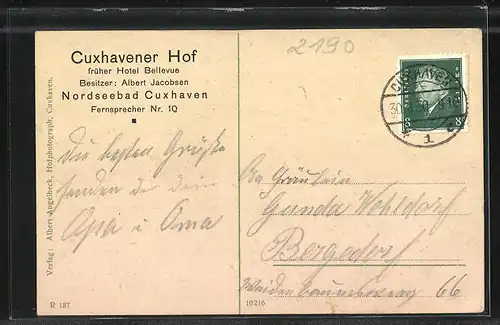 Cuxhavener Hof
früher Hotel Bellevue
Besitzer: Albert Jacobsen
Nordseebad Cuxhaven
Fernsprecher Nr. 10
Die besten Grüße
senden dir dein
Opa u Oma
Verlag: Albert Angelbeck, Hofphotograph, Cuxhaven.
R 137
2190
CUXHAVEN
30
1
8
An Fräulein
Gunda Wohldorf
Bergedorf
Weidenbaumsweg 66
10216